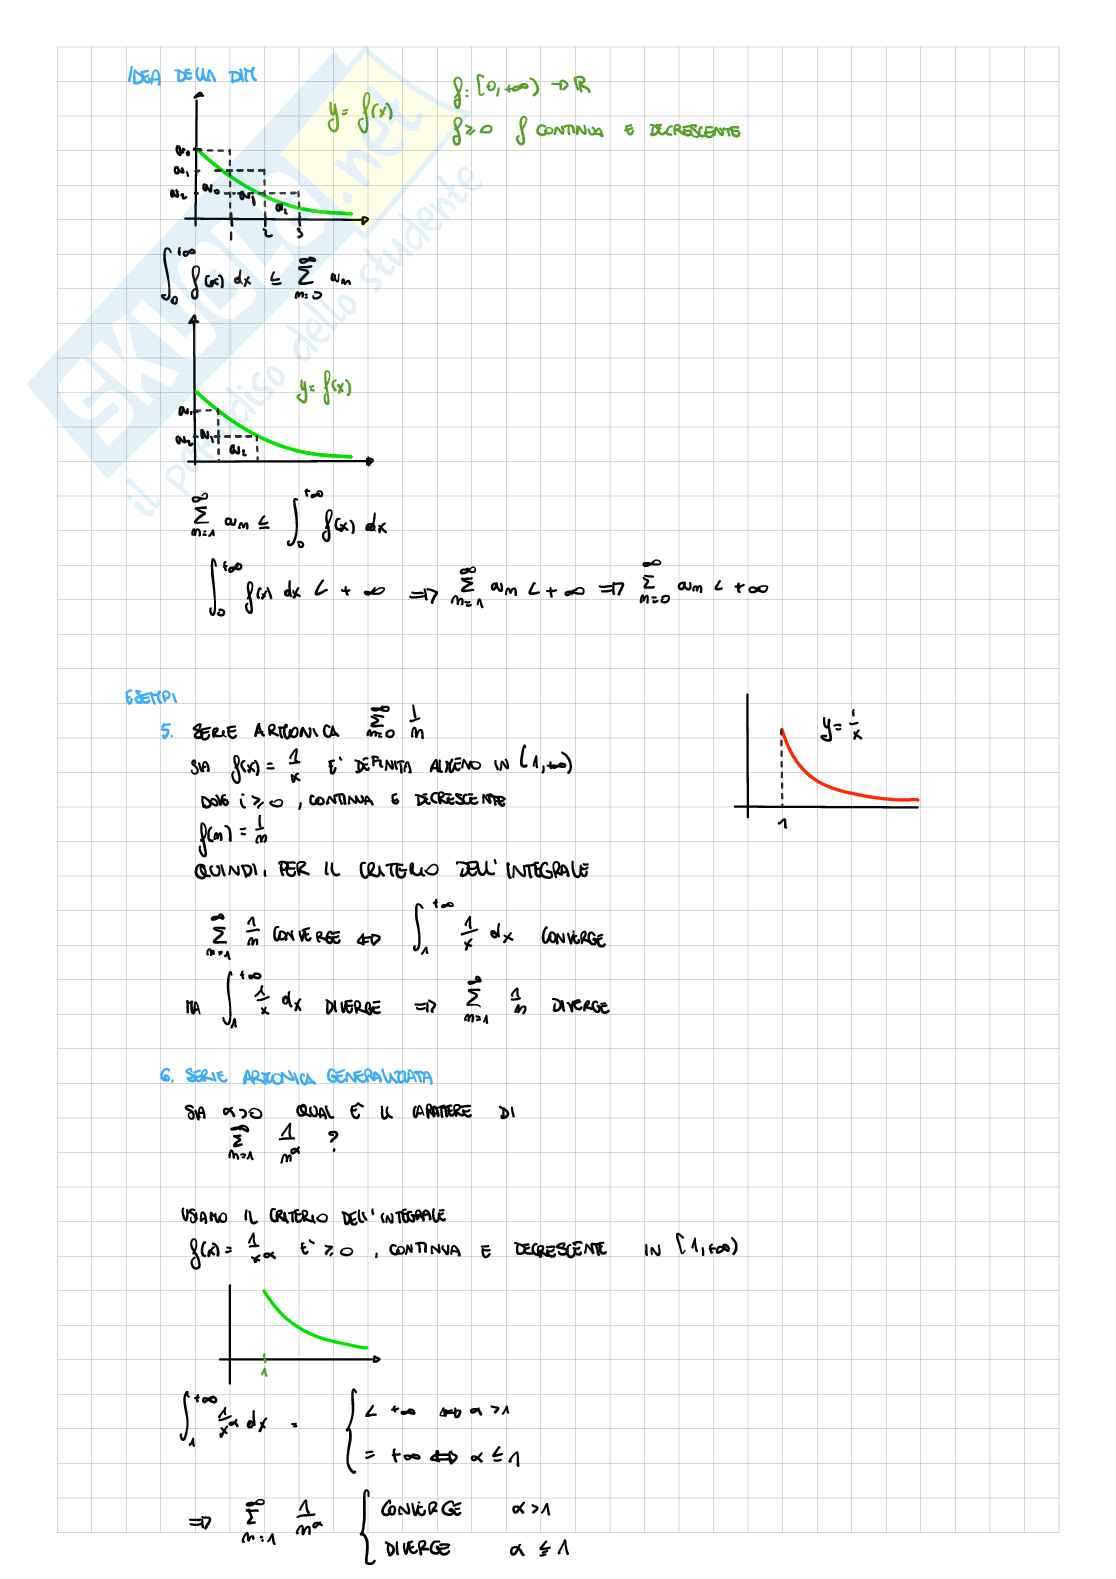 IDEA DELLA DIM
y = f(x)
f: [0, +∞) → ℝ
f ≥ 0 f CONTINUA E DECRESCENTE
a₀
a₁
a₂
a₀ a₁ a₂
1 2 3
∫₀^{+∞} f(x) dx ≤ ∑_{n=0}^{∞} aₙ
y = f(x)
a₁
a₂
a₁ a₂
∑_{n=1}^{∞} aₙ ≤ ∫₀^{+∞} f(x) dx
∫₀^{+∞} f(x) dx < +∞ ⇒ ∑_{n=1}^{∞} aₙ < +∞ ⇒ ∑_{n=0}^{∞} aₙ < +∞
ESEMPI
5. SERIE ARMONICA ∑_{n=0}^{∞} 1/n
SIA f(x) = 1/x E' DEFINITA ALMENO IN [1, +∞)
DOVE i ≥ 0, CONTINUA E DECRESCENTE
f(n) = 1/n
QUINDI, PER IL CRITERIO DELL'INTEGRALE
y = 1/x
1
∑_{n=1}^{∞} 1/n CONVERGE ⇔ ∫₁^{+∞} 1/x dx CONVERGE
MA ∫₁^{+∞} 1/x dx DIVERGE ⇒ ∑_{n=1}^{∞} 1/n DIVERGE
6. SERIE ARMONICA GENERALIZZATA
SIA α > 0 QUAL E' IL CARATTERE DI
∑_{n=1}^{∞} 1/n^α ?
USIAMO IL CRITERIO DELL'INTEGRALE
f(x) = 1/x^α E' ≥ 0, CONTINUA E DECRESCENTE IN [1, +∞)
1
∫₁^{+∞} 1/x^α dx = { < +∞ ⇔ α > 1
= +∞ ⇔ α ≤ 1
⇒ ∑_{n=1}^{∞} 1/n^α { CONVERGE α > 1
DIVERGE α ≤ 1
SKUOLA.net
il paradiso dello studente